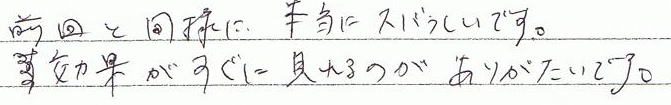 前回と同様に、本当にスバラしいです。
効果がすぐに見れるのがありがたいです。